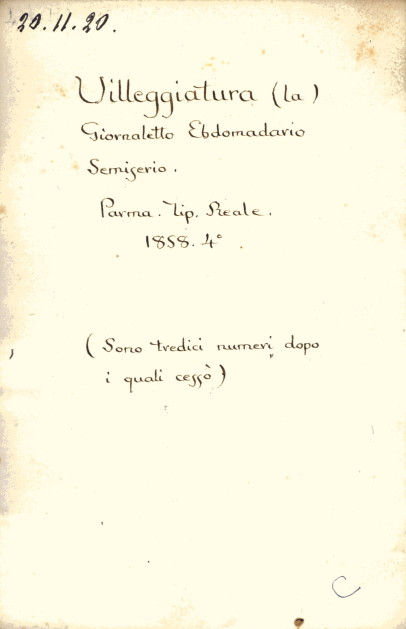 20.11.20.
Villeggiatura (la)
Giornaletto Ebdomadario
Semiserio.
Parma. Tip. Reale.
1858. 4°.
(Sono tredici numeri dopo
i quali cessò)
C